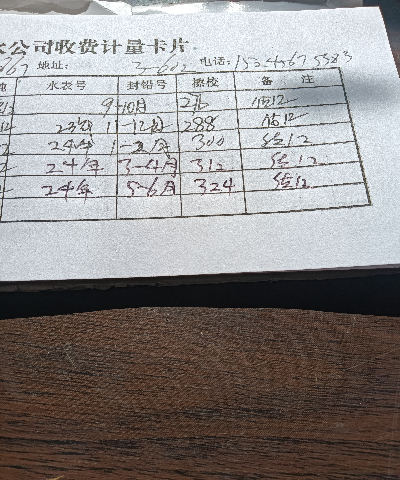 水公司收费计量卡片
地址: 2-602 电话: 15245675583
水表号 封铅号 撩校 备 注
9-10月 276 估12
23年 11-12月 288 估12
24年 1-2月 300 估12
24年 3-4月 312 估12
24年 5-6月 324 估12